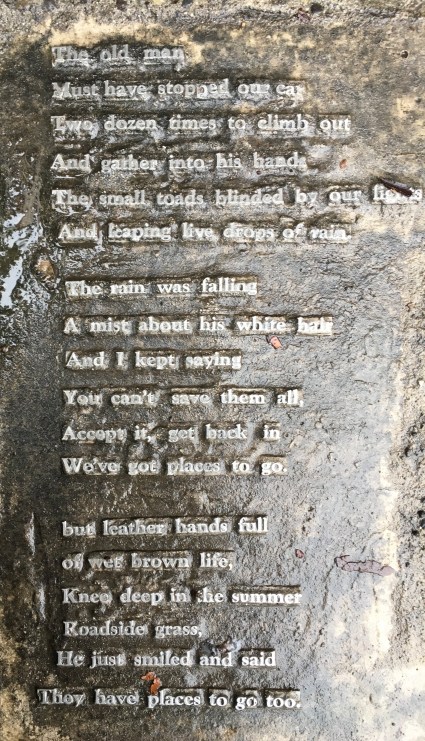 The old man
Must have stopped our car
Two dozen times to climb out
And gather into his hands
The small toads blinded by our lights
And leaping live drops of rain.
The rain was falling
A mist about his white hair
And I kept saying
You can't save them all,
Accept it, get back in
We've got places to go.
but leather hands full
of wet brown life,
Knee deep in the summer
Roadside grass,
He just smiled and said
They have places to go too.